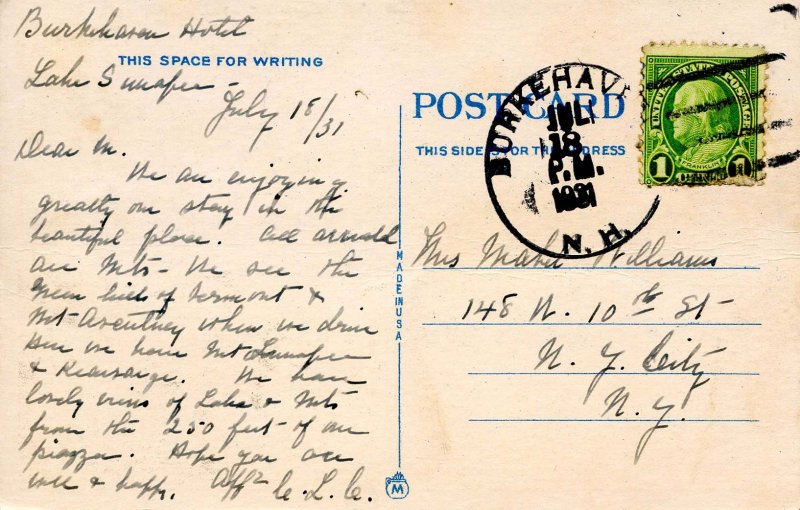 Burkehaven Hotel
THIS SPACE FOR WRITING
Lake Sunapee -
July 18/31
Dear M.
We are enjoying
greatly our stay in this
beautiful place. All around
are Mts - We see the
Green hills of Vermont &
Mt Ascutney when we drive
Here we have Mt Sunapee
& Kearsarge. We have
lovely views of Lake & Mts
from the 250 feet of our
piazza. Hope you are
well & happy. Aff² C. L. C.
MADE IN USA
M
POST CARD
THIS SIDE IS FOR THE ADDRESS
BURKEHAVEN
JUL
18
P.M.
1931
N.H.
UNITED STATES POSTAGE
FRANKLIN
1
Mrs Mabel Williams
148 W. 10th St -
N. Y. City
N. Y.